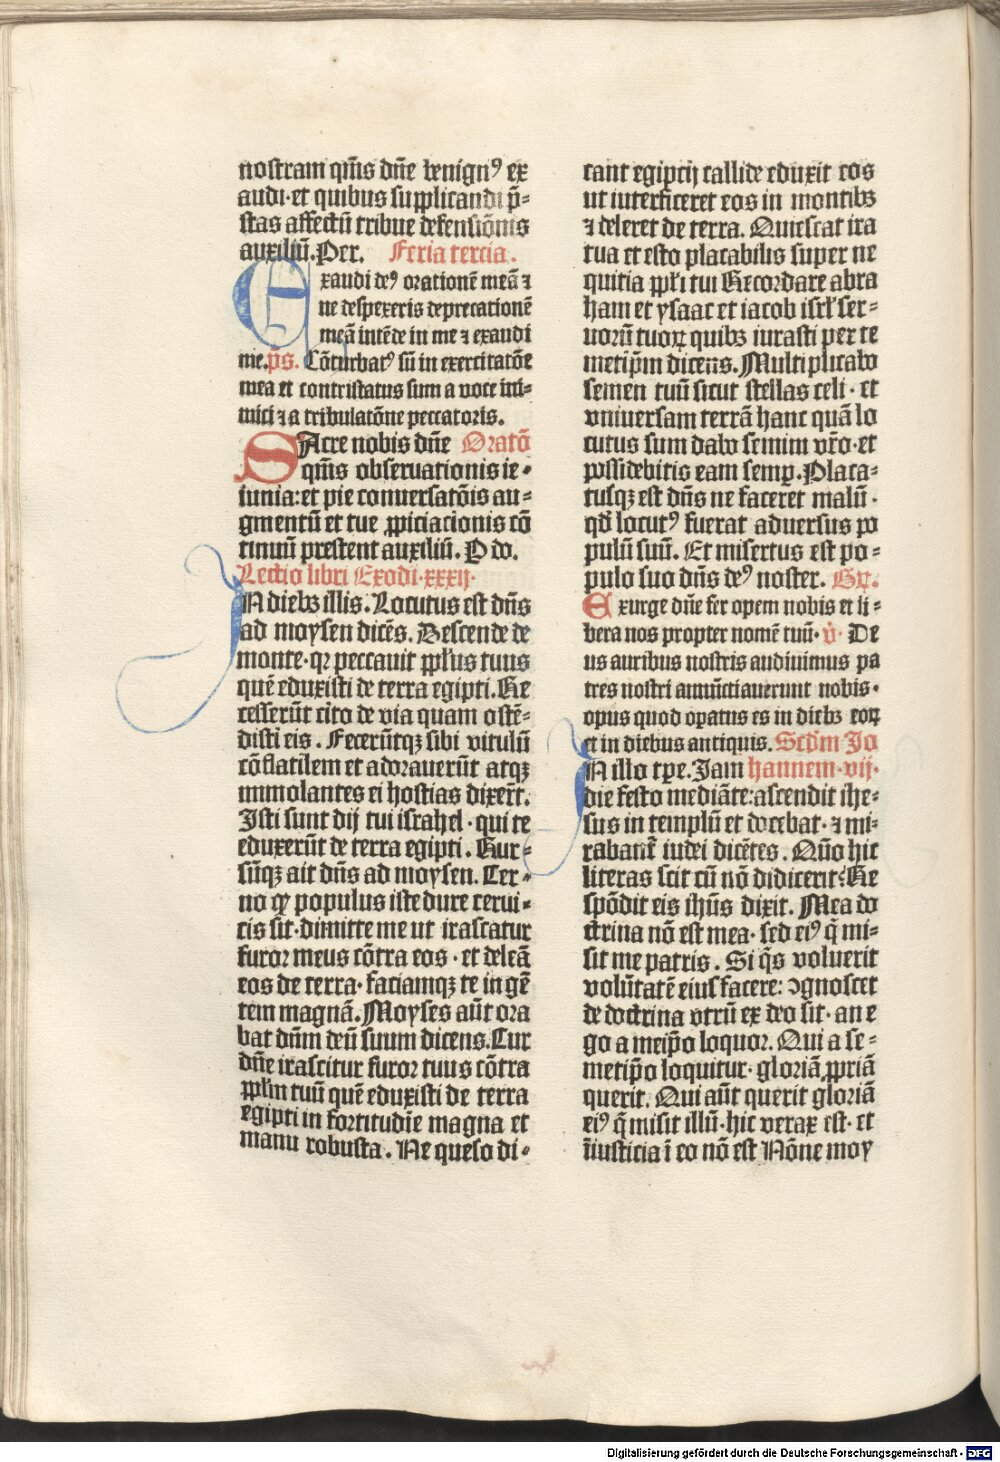 nostram qm̄s dn̄e benignꝰ ex
audi·et quibus supplicandi p̄-
stas affectū tribue defensiōnis
auxiliū.Per. Feria tercia.
Exaudi deꝰ orationē meā ⁊
ne despexeris deprecationē
meā intēde in me ⁊ exaudi
me.p̄s. Cōturbatꝰ sū in exercitatōe
mea et contristatus sum a voce ini-
mici ⁊ a tribulatōne peccatoris.
SAcre nobis dn̄e Oratō
qm̄s obseruationis ie-
iunia:et pie conuersatōis au-
gmentū et tue ꝓpiciacionis cō
tinuū prestent auxiliū. P do.
Lectio libri Exodi·xxxij·
IN diebꝫ illis. Locutus est dn̄s
ad moysen dicēs. Descende de
monte·qꝛ peccauit ppl̄us tuus
quē eduxisti de terra egipti. Re
cesserūt cito de via quam ostē-
disti eis. Fecerūtqꝫ sibi vitulū
cōflatilem et adorauerūt atqꝫ
immolantes ei hostias dixer̄t.
Isti sunt dij tui israhel·qui te
eduxerūt de terra egipti. Rur-
sūqꝫ ait dn̄s ad moysen. Cer-
no qꝫ populus iste dure cerui-
cis sit·dimitte me ut irascatur
furor meus cōtra eos·et deleā
eos de terra·faciamqꝫ te in gē
tem magnā. Moyses aūt ora
bat dn̄m deū suum dicens. Cur
dn̄e irascitur furor tuus cōtra
ppl̄m tuū quē eduxisti de terra
egipti in fortitudīe magna et
manu robusta. Ne queso di-
cant egiptij callide eduxit eos
ut interficeret eos in montibꝫ
⁊ deleret de terra. Quiescat ira
tua et esto placabilis super ne
quitia ppl̄i tui Recordare abra
ham et ysaac et iacob isrl̄ ser-
uorū tuoꝝ quibꝫ iurasti per te
metip̄m dicens. Multiplicabo
semen tuū sicut stellas celi·et
vniuersam terrā hanc quā lo
cutus sum dabo semini vr̄o·et
possidebitis eam semꝑ. Placa-
tusqꝫ est dn̄s ne faceret malū·
qd̄ locutꝰ fuerat aduersus po
pulū suū. Et misertus est po-
pulo suo dn̄s deꝰ noster. Gr̄.
Exurge dn̄e fer opem nobis et li-
bera nos propter nomē tuū· v̇ De
us auribus nostris audiuimus pa
tres nostri annūctiauerunt nobis·
opus quod opatus es in diebꝫ eoꝝ
et in diebus antiquis. Scd̄m Jo
IN illo tp̄e. Jam hannem·vij·
die festo mediāte:ascendit ihe-
sus in templū et docebat·⁊ mi-
rabant̄ iudei dicētes. Quō hic
literas scit cū nō didicerit? Re
spōdit eis ihūs dixit. Mea do
ctrina nō est mea·sed eiꝰ q̄ mi-
sit me patris. Si q̄s voluerit
volūtatē eius facere: ꝯgnoscet
de doctrina vtrū ex deo sit·an e
go a meip̄o loquor. Qui a se-
metip̄o loquitur·gloriā ꝓpriā
querit. Qui aūt querit gloriā
eiꝰ q̄ misit illū·hic verax est·et
īiusticia ī eo nō est Nōne moy
Digitalisierung gefördert durch die Deutsche Forschungsgemeinschaft - DFG